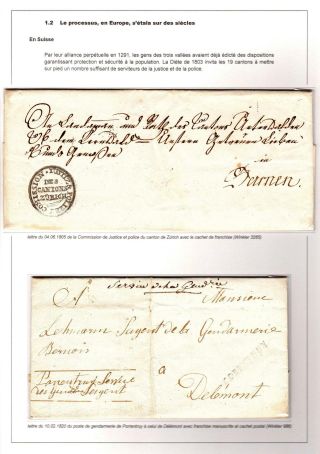 1.2 Le processus, en Europe, s'étala sur des siècles
En Suisse
Par leur alliance perpétuelle en 1291, les gens des trois vallées avaient déjà édicté des dispositions
garantissant protection et sécurité à la population. La Diète de 1803 invita les 19 cantons à mettre
sur pied un nombre suffisant de serviteurs de la justice et de la police.
und des Cantons Unterwalden
ob dem Unseren Getreuen Lieben
in
Sarnen.
DES
CANTONS
ZÜRICH
lettre du 04.06.1805 de la Commission de Justice et police du canton de Zürich avec le cachet de franchise (Winkler 3265)
Service de la
Monsieur
Lehmann Sergent de la Gendarmerie
Bernois
à
Porrentruy Service
Delémont
lettre du 10.02.1820 du poste de gendarmerie de Porrentruy à celui de Delémont avec franchise manuscrite et cachet postal